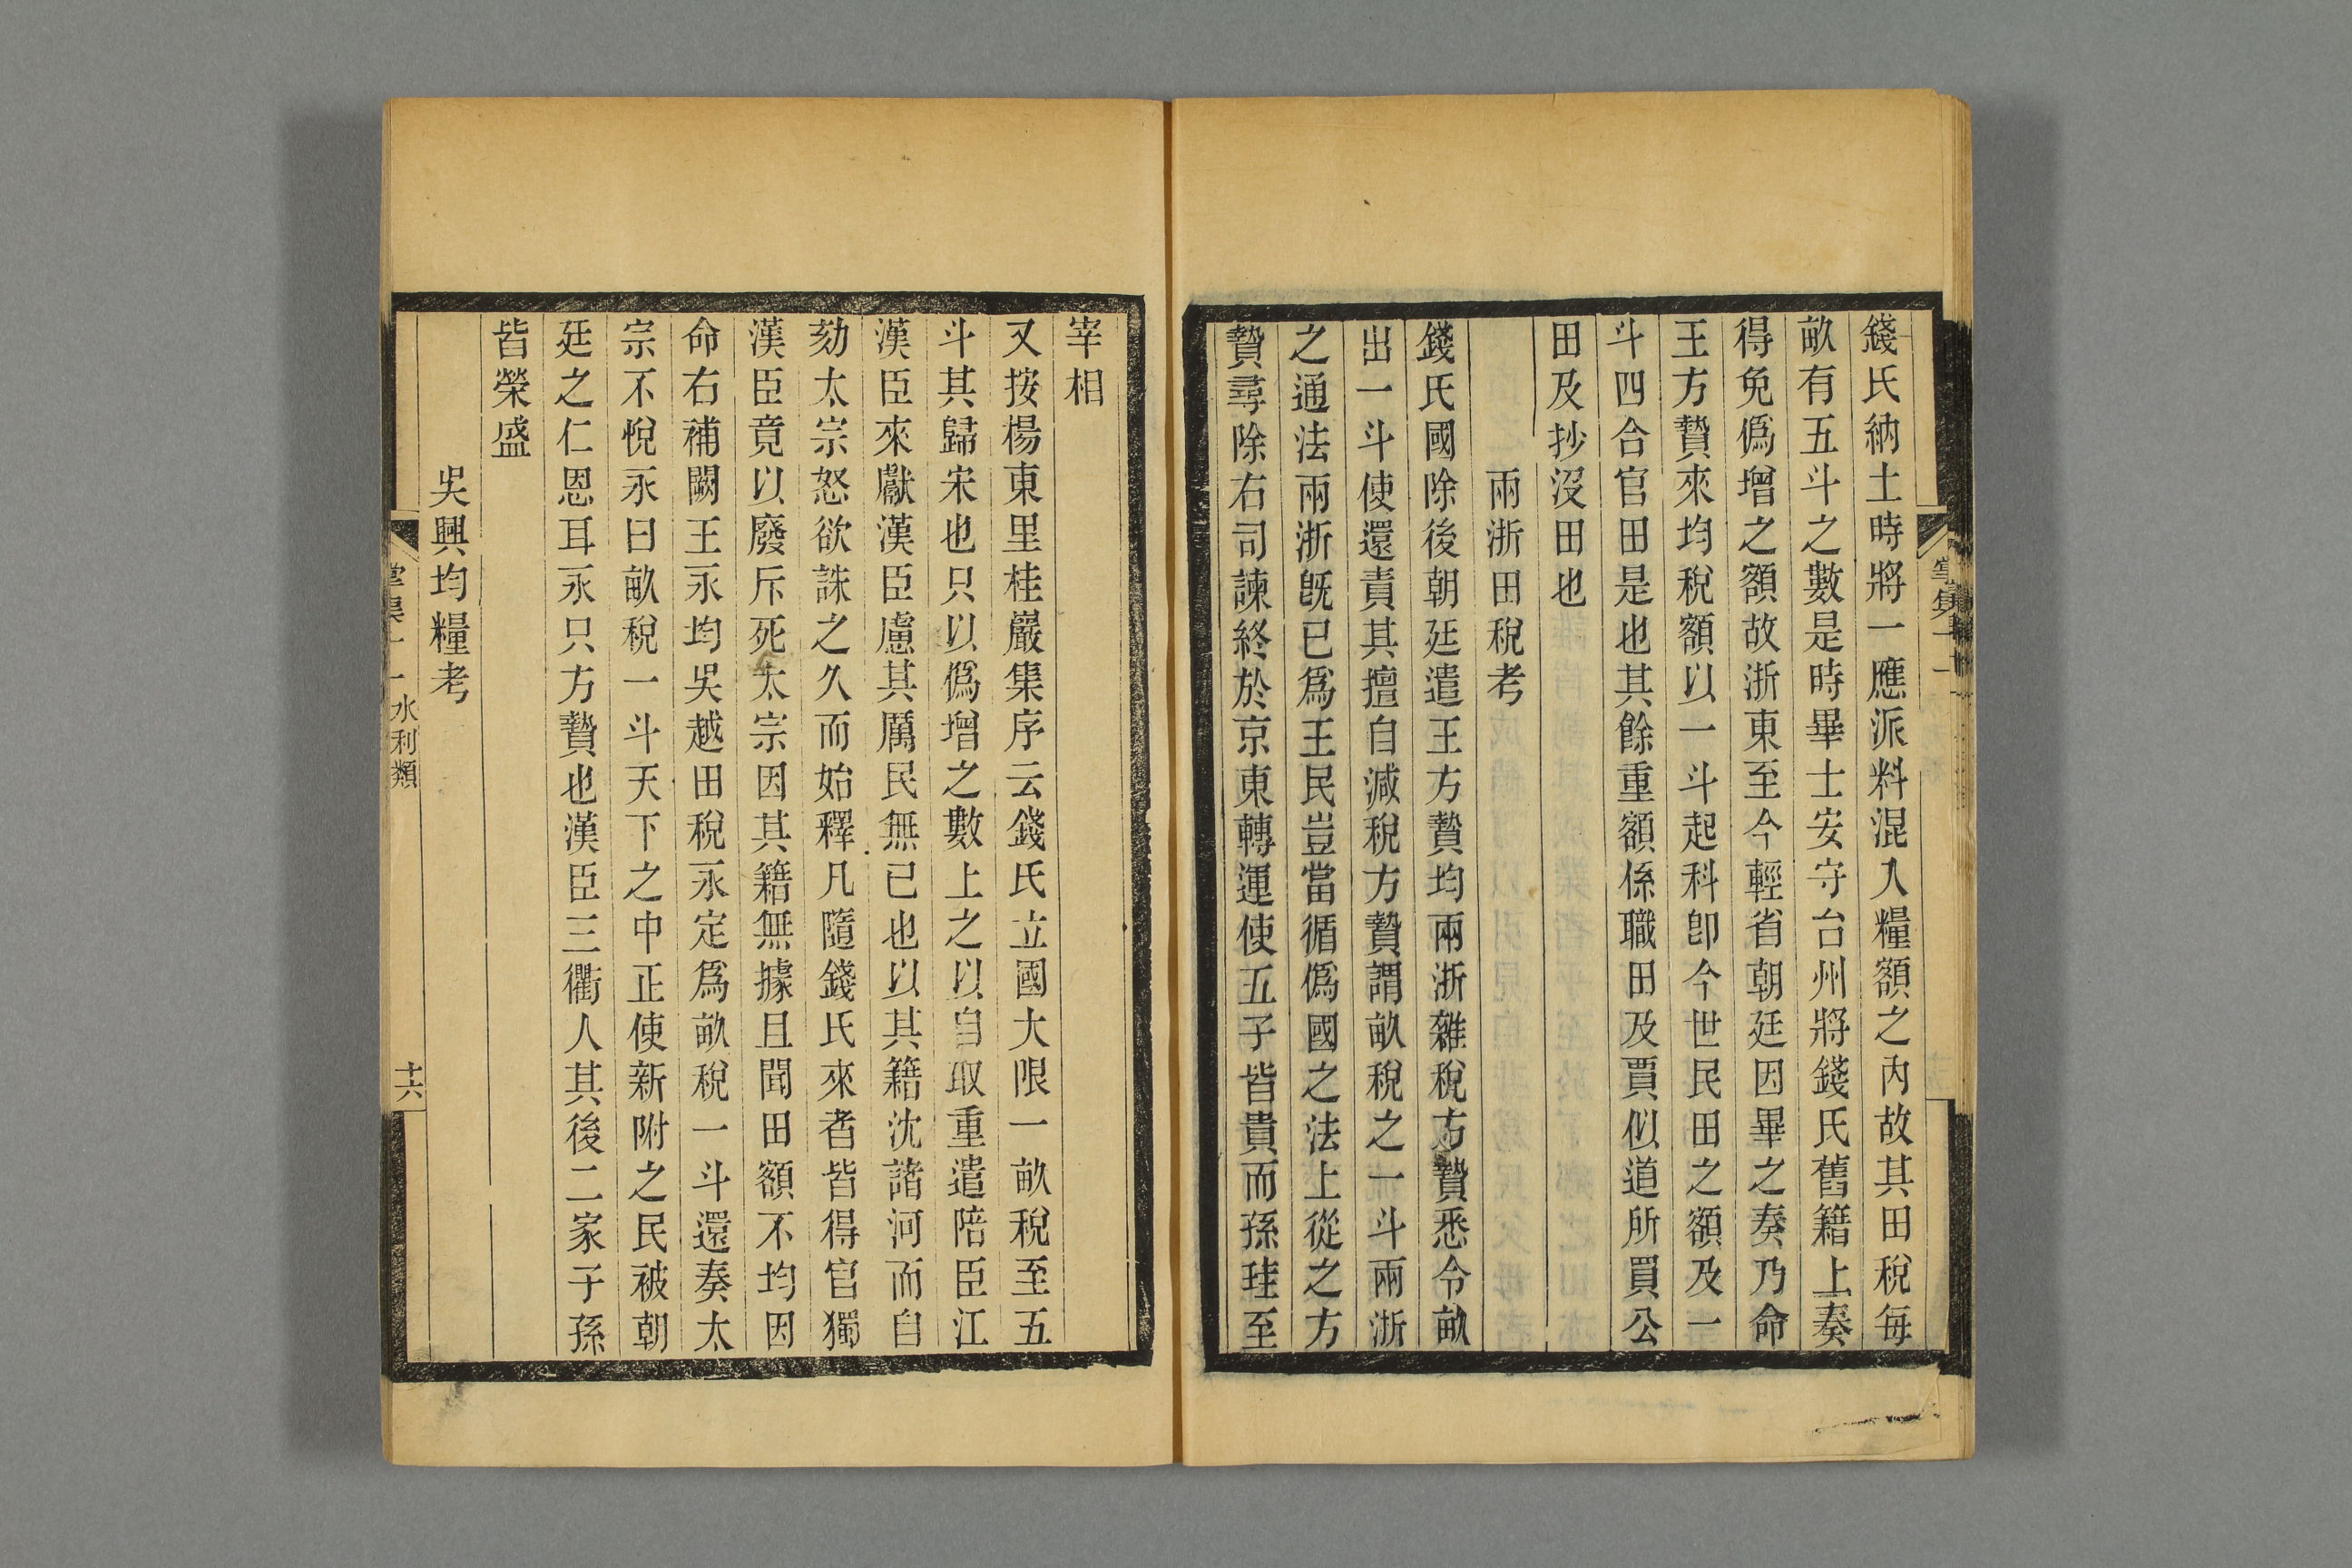 錢氏納土時將一應派料混入糧額之內故其田稅每
畝有五斗之數是時畢士安守台州將錢氏舊籍上奏
得免僞增之額故浙東至今輕省朝廷因畢之奏乃命
王方贄來均稅額以一斗起科卽今世民田之額及一
斗四合官田是也其餘重額係職田及賈似道所買公
田及抄沒田也
兩浙田稅考
錢氏國除後朝廷遣王方贄均兩浙雜稅方贄悉令畝
出一斗使還責其擅自減稅方贄謂畝稅之一斗兩浙
之通法兩浙旣已爲王民豈當循僞國之法上從之方
贄尋除右司諫終於京東轉運使五子皆貴而孫珪至
宰相
又按楊東里桂巖集序云錢氏立國大限一畝稅至五
斗其歸宋也只以僞增之數上之以自取重遣陪臣江
漢臣來獻漢臣慮其厲民無已也以其籍沈諸河而自
劾太宗怒欲誅之久而始釋凡隨錢氏來者皆得官獨
漢臣竟以廢斥死太宗因其籍無據且聞田額不均因
命右補闕王永均吳越田稅永定爲畝稅一斗還奏太
宗不悅永曰畝稅一斗天下之中正使新附之民被朝
廷之仁恩耳永只方贄也漢臣三衢人其後二家子孫
皆榮盛
吳興均糧考
水利類
十六